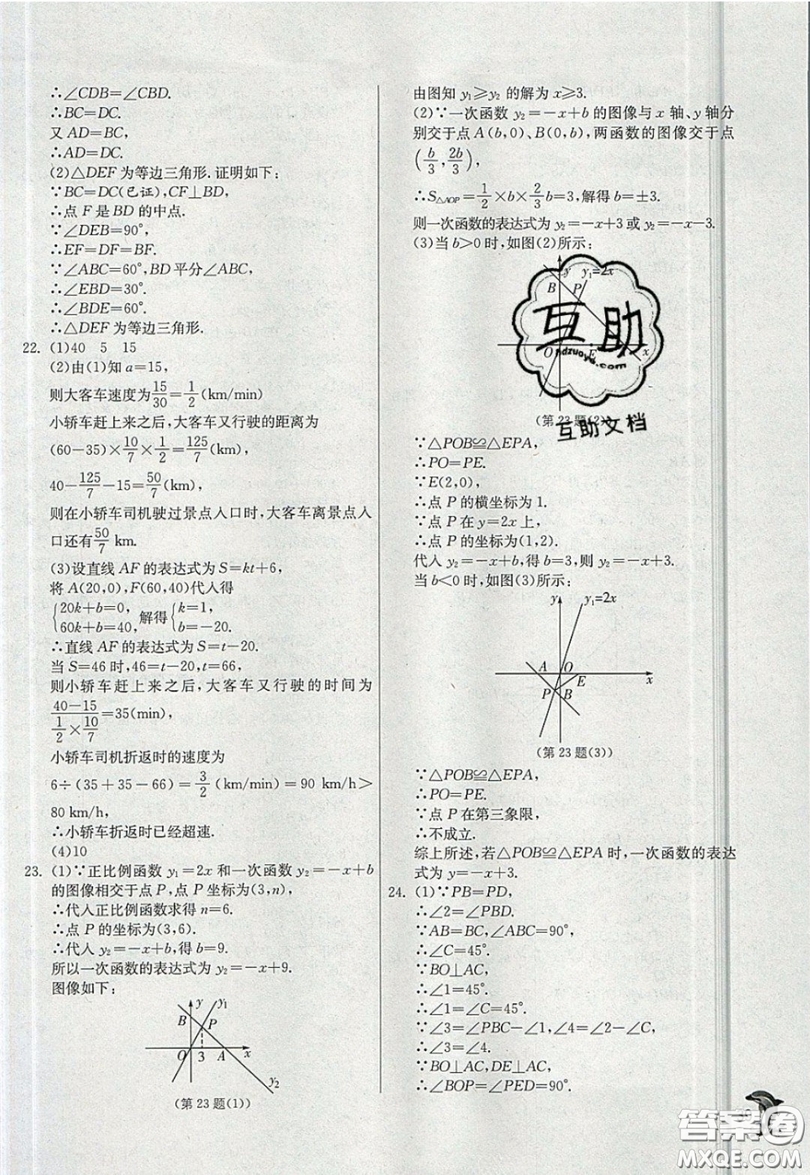 ∴∠CDB=∠CBD.
∴BC=DC.
又 AD=BC,
∴AD=DC.
(2)△DEF 为等边三角形. 证明如下:
∵BC=DC(已证),CF⊥BD,
∴点 F 是 BD 的中点.
∵∠DEB=90°,
∴EF=DF=BF.
∵∠ABC=60°,BD 平分∠ABC,
∴∠EBD=30°.
∴∠BDE=60°.
∴△DEF 为等边三角形.
22. (1)40 5 15
(2)由(1)知 a=15,
则大客车速度为15/30=1/2(km/min)
小轿车赶上来之后,大客车又行驶的距离为
(60-35)×10/7×1/2=125/7(km),
40-125/7-15=50/7(km),
则在小轿车司机驶过景点入口时,大客车离景点入
口还有50/7 km.
(3)设直线 AF 的表达式为 S=kt+6,
将 A(20,0),F(60,40)代入得
{20k+b=0, 60k+b=40, 解得{k=1, b=-20.
∴直线 AF 的表达式为 S=t-20.
当 S=46 时,46=t-20,t=66,
则小轿车赶上来之后,大客车又行驶的时间为
(40-15)/(1/2×10/7)=35(min),
小轿车司机折返时的速度为
6÷(35+35-66)=3/2(km/min)=90 km/h>
80 km/h,
∴小轿车折返时已经超速.
(4)10
23. (1)∵正比例函数 y₁=2x 和一次函数 y₂=-x+b
的图像相交于点 P,点 P 坐标为(3,n),
∴代入正比例函数求得 n=6.
∴点 P 的坐标为(3,6).
∴代入 y₂=-x+b,得 b=9.
所以一次函数的表达式为 y₂=-x+9.
图像如下:
y y₁
B P
O 3 A x
y₂
(第 23 题(1))
由图知 y₁≥y₂ 的解为 x≥3.
(2)∵一次函数 y₂=-x+b 的图像与 x 轴、y 轴分
别交于点 A(b,0)、B(0,b),两函数的图像交于点
(b/3,2b/3),
∴S△AOP=1/2×b×2/3b=3,解得 b=±3.
则一次函数的表达式为 y₂=-x+3 或 y₂=-x-3.
(3)当 b>0 时,如图(2)所示:
y y₁=2x
B P
O E x
(第 23 题(2))
互助
ndzuoye.com
互助文档
∵△POB≌△EPA,
∴PO=PE.
∵E(2,0),
∴点 P 的横坐标为 1.
∵点 P 在 y=2x 上,
∴点 P 的坐标为(1,2).
代入 y₂=-x+b,得 b=3,则 y₂=-x+3.
当 b<0 时,如图(3)所示:
y y₁=2x
A O E x
P B
(第 23 题(3))
∵△POB≌△EPA,
∴PO=PE.
∵点 P 在第三象限,
∴不成立.
综上所述,若△POB≌△EPA 时,一次函数的表达
式为 y=-x+3.
24. (1)∵PB=PD,
∴∠2=∠PBD.
∵AB=BC,∠ABC=90°,
∴∠C=45°.
∵BO⊥AC,
∴∠1=45°.
∴∠1=∠C=45°.
∵∠3=∠PBC-∠1,∠4=∠2-∠C,
∴∠3=∠4.
∵BO⊥AC,DE⊥AC,
∴∠BOP=∠PED=90°.
答案圈
MXQE.COM